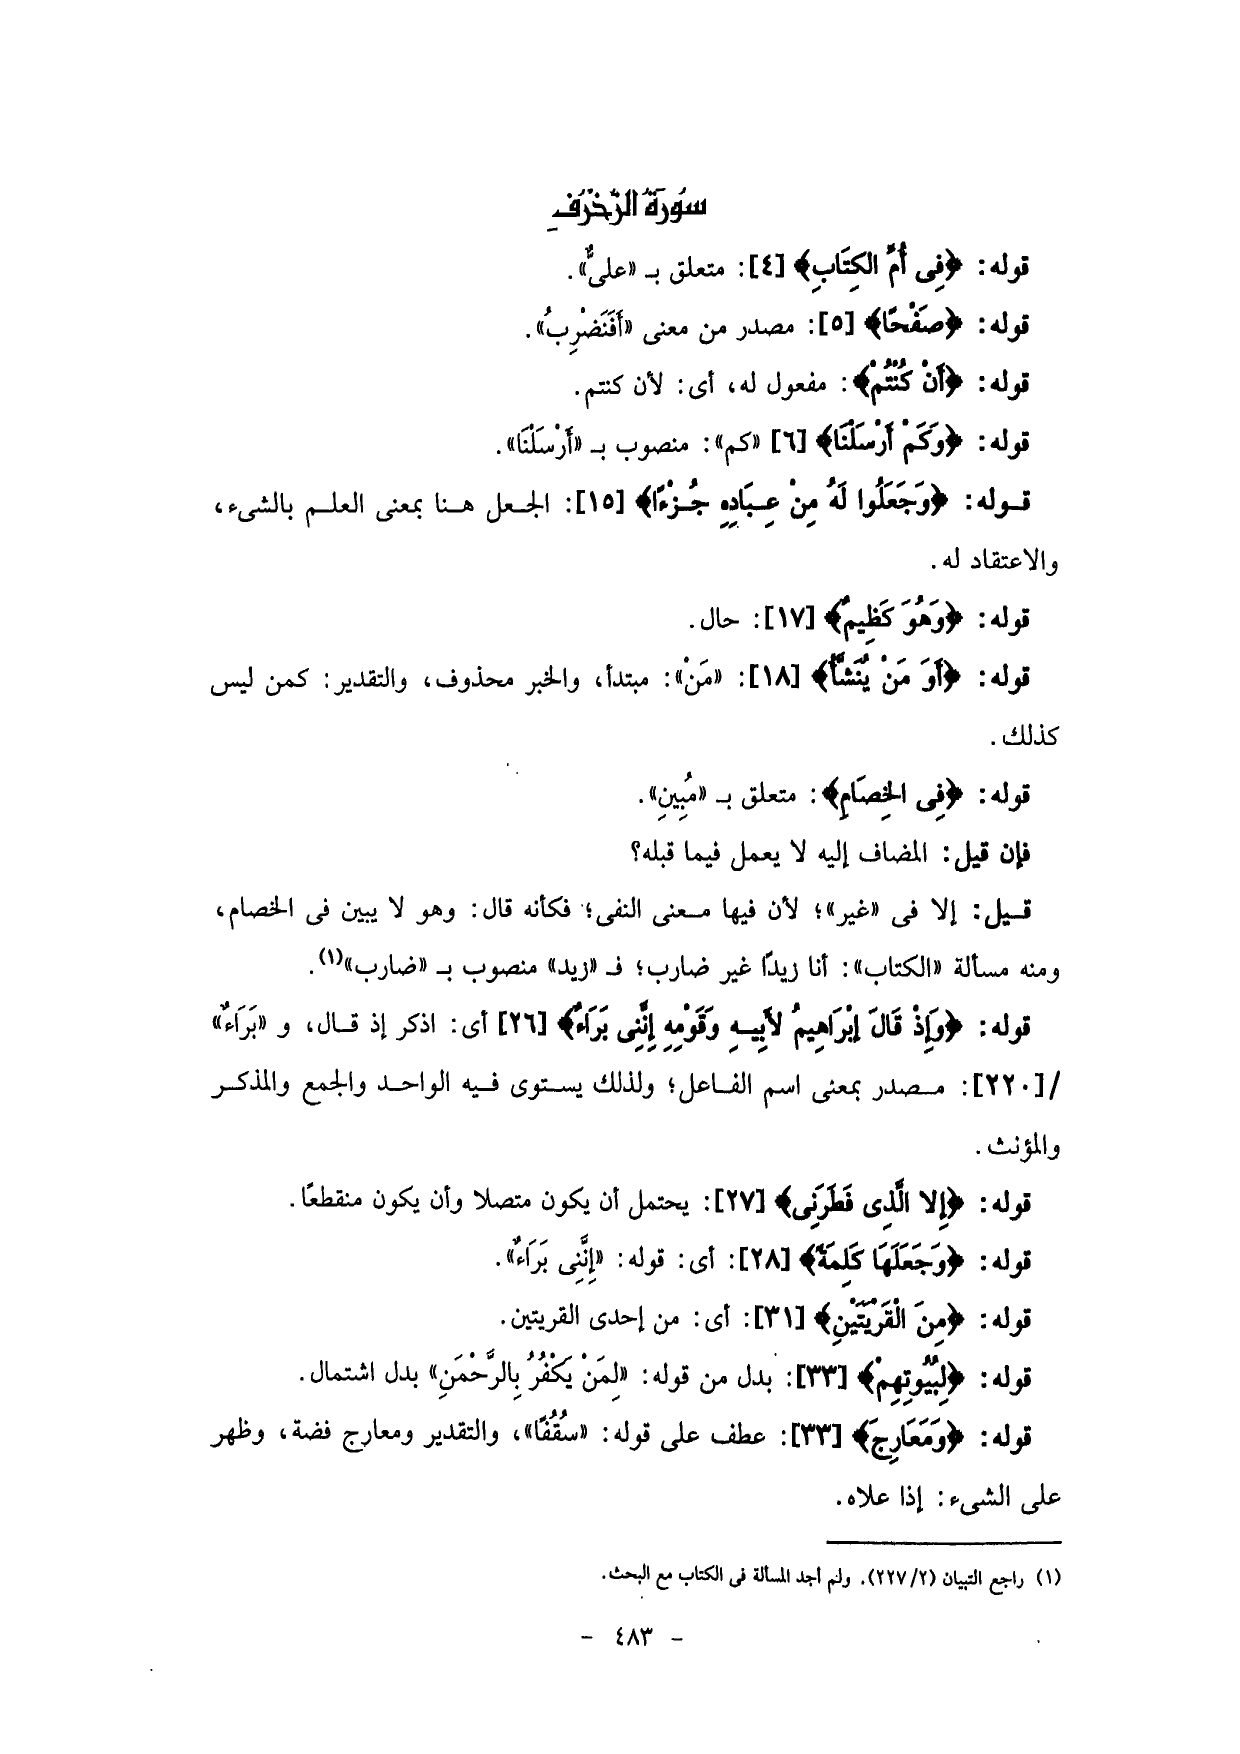 سُورَةُ الزُّخْرُفِ
قوله: ﴿فِى أُمِّ الكِتَابِ﴾ [٤]: متعلق بـ «علىٌّ».
قوله: ﴿صَفْحًا﴾ [٥]: مصدر من معنى «أَفَنَضْرِبُ».
قوله: ﴿أَنْ كُنْتُمْ﴾: مفعول له، أى: لأن كنتم.
قوله: ﴿وَكَمْ أَرْسَلْنَا﴾ [٦] «كم»: منصوب بـ «أَرْسَلْنَا».
قـوله: ﴿وَجَعَلُوا لَهُ مِنْ عِبَادِهِ جُـزْءًا﴾ [١٥]: الجـعل هـنا بمعنى العلـم بالشىء،
والاعتقاد له.
قوله: ﴿وَهُوَ كَظِيمٌ﴾ [١٧]: حال.
قوله: ﴿أَوَ مَنْ يُنَشَّأُ﴾ [١٨]: «مَنْ»: مبتدأ، والخبر محذوف، والتقدير: كمن ليس
كذلك.
قوله: ﴿فِى الخِصَامِ﴾: متعلق بـ «مُبِينِ».
فإن قيل: المضاف إليه لا يعمل فيما قبله؟
قـيل: إلا فى «غير»؛ لأن فيها مـعنى النفى؛ فكأنه قال: وهو لا يبين فى الخصام،
ومنه مسألة «الكتاب»: أنا زيدًا غير ضارب؛ فـ «زيد» منصوب بـ «ضارب»(١).
قوله: ﴿وَإِذْ قَالَ إِبْرَاهِيمُ لأَبِيـهِ وَقَوْمِهِ إِنَّنِى بَرَاءٌ﴾ [٢٦] أى: اذكر إذ قـال، و «بَرَاءٌ»
/[٢٢٠]: مـصدر بمعنى اسم الفـاعل؛ ولذلك يسـتوى فـيه الواحـد والجمع والمذكـر
والمؤنث.
قوله: ﴿إِلا الَّذِى فَطَرَنِى﴾ [٢٧]: يحتمل أن يكون متصلا وأن يكون منقطعًا.
قوله: ﴿وَجَعَلَهَا كَلِمَةً﴾ [٢٨]: أى: قوله: «إِنَّنِى بَرَاءٌ».
قوله: ﴿مِنَ الْقَرْيَتَيْنِ﴾ [٣١]: أى: من إحدى القريتين.
قوله: ﴿لِبُيُوتِهِمْ﴾ [٣٣]: بدل من قوله: «لِمَنْ يَكْفُرُ بِالرَّحْمَنِ» بدل اشتمال.
قوله: ﴿وَمَعَارِجَ﴾ [٣٣]: عطف على قوله: «سُقُفًا»، والتقدير ومعارج فضة، وظهر
على الشىء: إذا علاه.
(١) راجع التبيان (٢/ ٢٢٧). ولم أجد المسألة فى الكتاب مع البحث.
- ٤٨٣ -